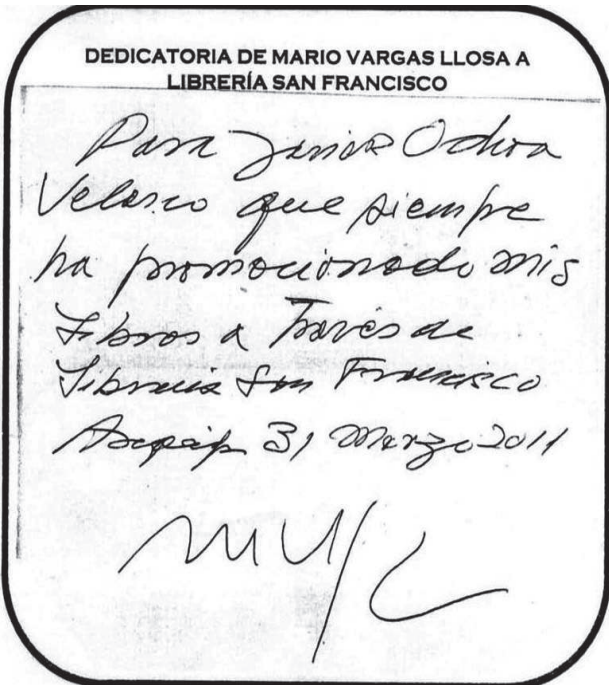 DEDICATORIA DE MARIO VARGAS LLOSA A
LIBRERÍA SAN FRANCISCO
Para Javier Ochoa
Velasco que siempre
ha promocionado mis
Libros a Través de
Libreria San Francisco
31 Marzo 2011